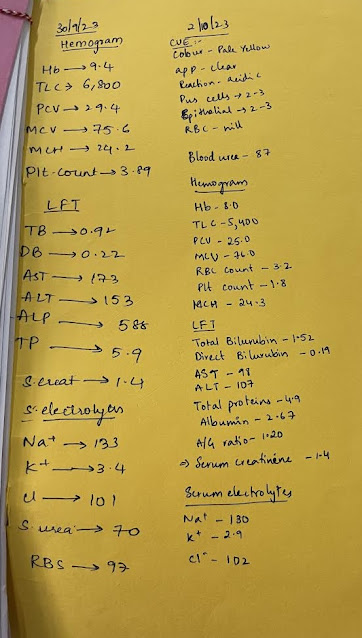 30/9/23
Hemogram
Hb → 9.4
TLC → 6,800
PCV → 29.4
MCV → 75.6
MCH → 24.2
Plt. count → 3.89
LFT
TB → 0.92
DB → 0.22
AST → 173
ALT → 153
ALP → 588
TP → 5.9
S. creat → 1.4
S. electrolytes
Na+ → 133
K+ → 3.4
Cl → 101
S. urea → 70
RBS → 97
2/10/23
CUE :-
Colour - Pale Yellow
app - clear
Reaction - acidic
Pus cells → 2-3
Epithelial → 2-3
RBC - nill
Blood urea - 87
Hemogram
Hb - 8.0
TLC - 5,400
PCV - 25.0
MCV - 76.0
RBC count - 3.2
Plt count - 1.8
MCH - 24.3
LFT
Total Bilurubin - 1.52
Direct Bilurubin - 0.19
AST - 98
ALT - 107
Total proteins - 4.9
Albumin - 2.67
A/G ratio - 1.20
⇒ Serum creatinine - 1.4
Serum electrolytes
Na+ - 130
K+ - 2.9
Cl- - 102